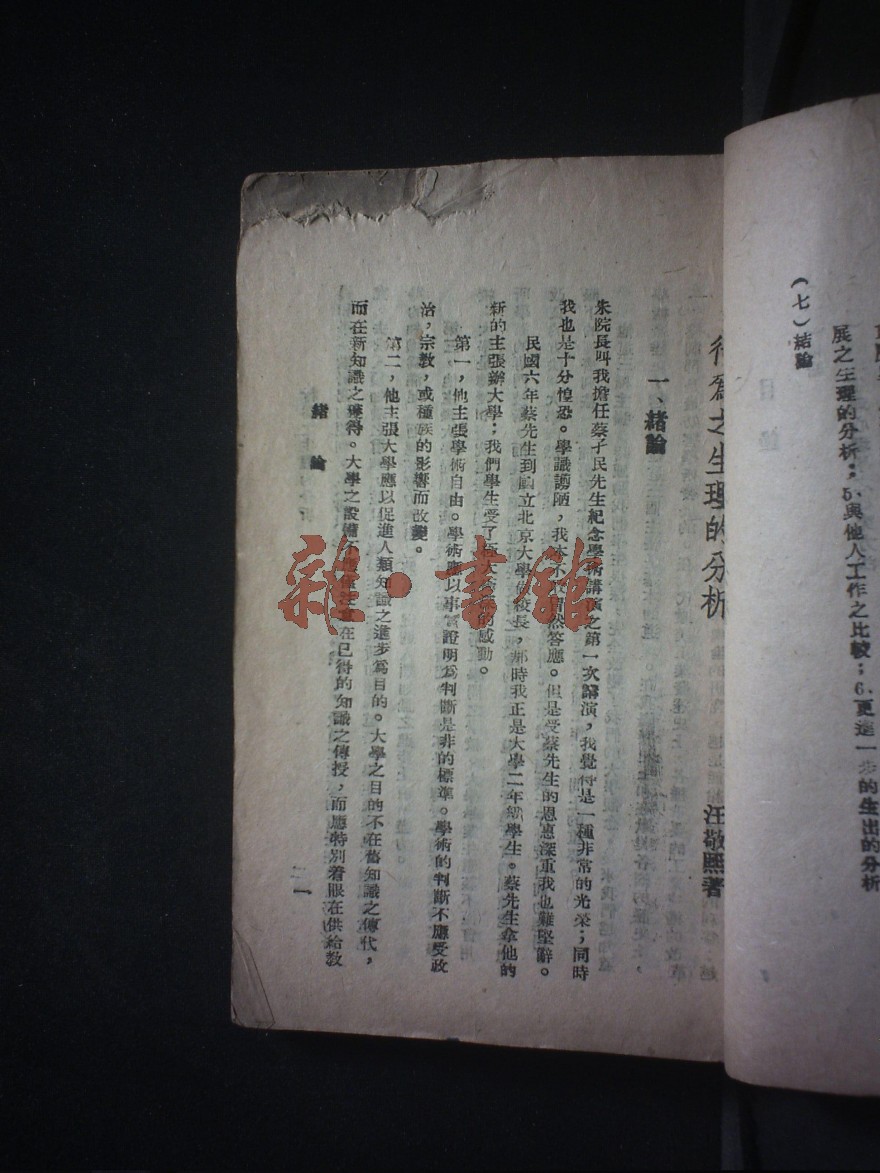 展之生理的分析；5.與他人工作之比較；6.更進一步的生出的分析
（七）結論
行爲之生理的分析
汪敬熙著
一、緒論
朱院長叫我擔任蔡孑民先生紀念學術講演之第一次講演，我覺得是一種非常的光榮；同時
我也是十分惶恐。學識譾陋，我本不敢冒然答應。但是受蔡先生的恩惠深重我也難堅辭。
民國六年蔡先生到國立北京大學做校長，那時我正是大學二年級學生。蔡先生拿他的
新的主張辦大學；我們學生受了極大的感動。
第一，他主張學術自由。學術應以事實證明爲判斷是非的標準。學術的判斷不應受政
治，宗教，或種族的影響而改變。
第二，他主張大學應以促進人類知識之進步爲目的。大學之目的不在舊知識之傳代，
而在新知識之獲得。大學之設備不應在已得的知識之傳授，而應特別着眼在供給教
緒論
一
雜·書館